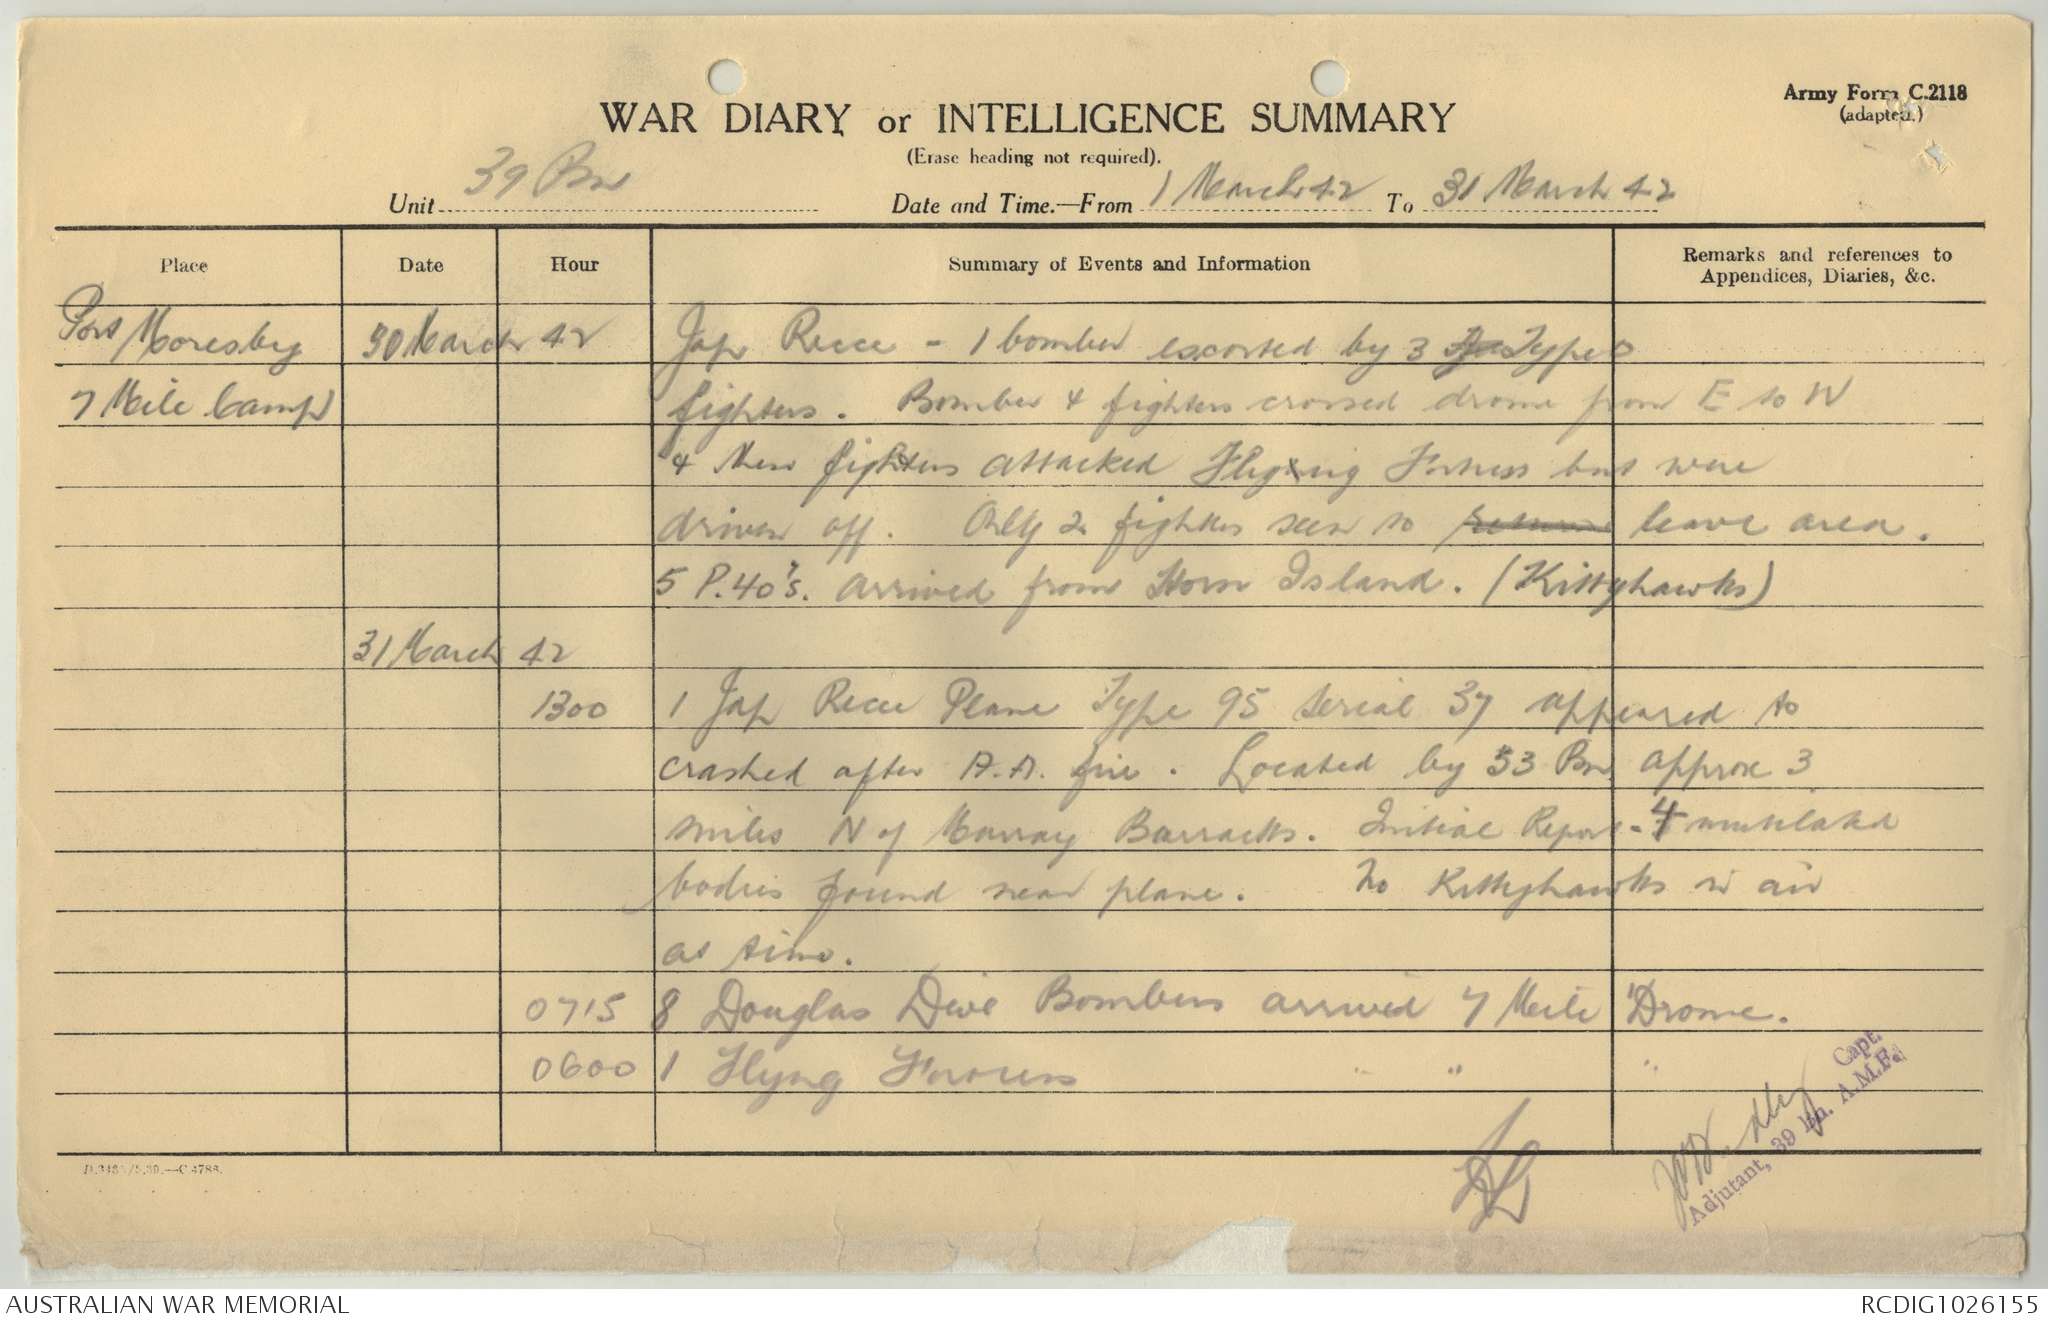 Army Form C.2118
(adapted.)
WAR DIARY or INTELLIGENCE SUMMARY
(Erase heading not required).
Unit 39 Bn Date and Time.—From 1 March 42 To 31 March 42
Place Date Hour Summary of Events and Information Remarks and references to Appendices, Diaries, &c.
Port Moresby 30 March 42 Jap Recce - 1 bomber escorted by 3 Type 0
7 Mile Camp fighters. Bomber & fighters crossed drome from E to W
& then fighters attacked Flying Fortress but were
driven off. Only 2 fighters seen to return leave area.
5 P.40's. arrived from Horn Island. (Kittyhawks)
31 March 42
1300 1 Jap Recce Plane Type 95 Serial 37 appeared to
crashed after A.A. fire. Located by 53 Bn approx 3
miles N of Murray Barracks. Initial Report - 4 mutilated
bodies found near plane. No Kittyhawks in air
at time.
0715 8 Douglas Dive Bombers arrived 7 Mile 'Drome.
0600 1 Flyng Fortress " " "
D.3433/5.39.—C.4786.
Capt.
Adjutant, 39 Bn. A.M.F.
AUSTRALIAN WAR MEMORIAL RCDIG1026155